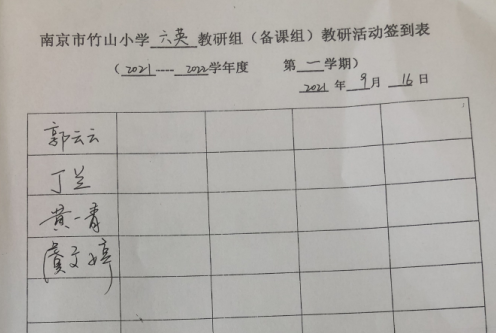 南京市竹山小学 六英 教研组（备课组）教研活动签到表
（2021----2022学年度 第一学期）
2021年9月16日
郭云云
丁兰
黄一青
文婷